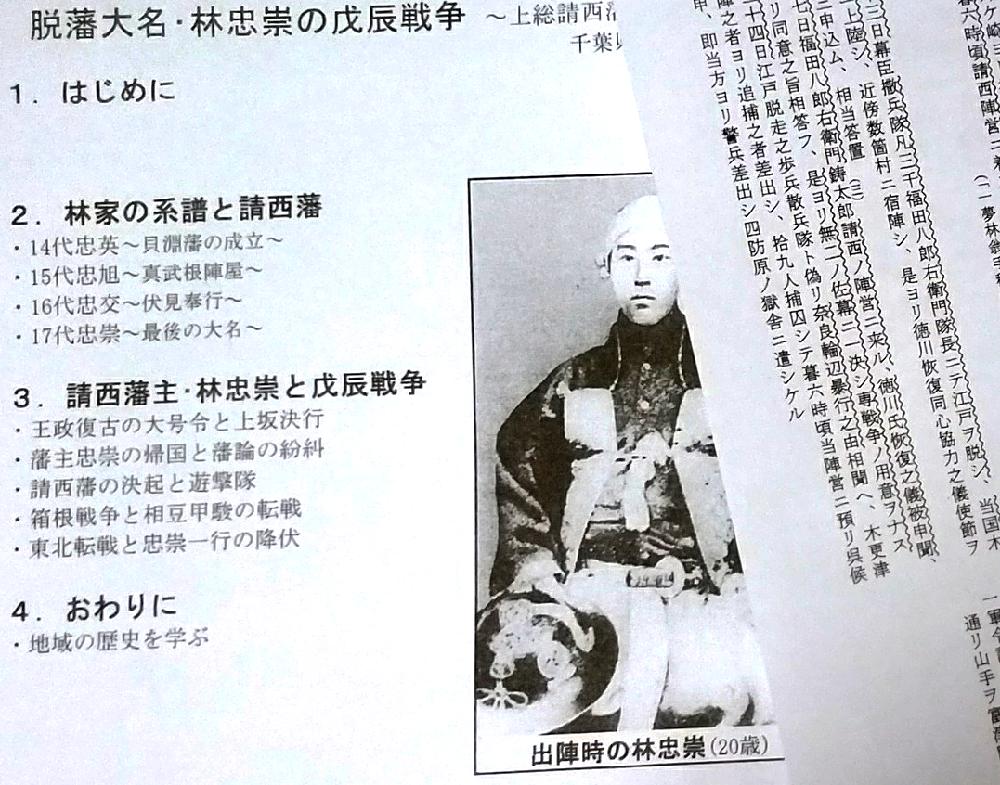 脱藩大名・林忠崇の戊辰戦争 ～上総請西
千葉
1．はじめに
2．林家の系譜と請西藩
・14代忠英～貝淵藩の成立～
・15代忠旭～真武根陣屋～
・16代忠交～伏見奉行～
・17代忠崇～最後の大名～
3．請西藩主・林忠崇と戊辰戦争
・王政復古の大号令と上坂決行
・藩主忠崇の帰国と藩論の紛糾
・請西藩の決起と遊撃隊
・箱根戦争と相豆甲駿の転戦
・東北転戦と忠崇一行の降伏
4．おわりに
・地域の歴史を学ぶ
出陣時の林忠崇(20歳)
六時頃請西陣営ニ
(一夢林翁手
三日幕臣撒兵隊凡三千福田八郎右衛門隊長ニテ江戸ヲ脱シ、当国木
上陸シ、近傍数箇村ニ宿陣シ、是ヨリ徳川恢復同心協力之儀使節ヲ
申込ム、相当答置(三)請西ノ陣営ニ来ル、徳川氏恢復之儀被申聞、
七日福田八郎右衛門鋳太郎
リ同意之旨相答フ、是ヨリ無二ノ佐幕ニ一決シ専戦争ノ用意ヲナス
二十四日江戸脱走之歩兵撒兵隊ト偽リ奈良輪辺暴行之由相聞ヘ、木更津
陣之者ヨリ追捕之者差出シ、拾九人捕囚シテ暮六時頃当陣営ニ預リ呉候
申、即当方ヨリ警兵差出シ四防原ノ獄舎ニ遣シケル
通リ山手ヲ